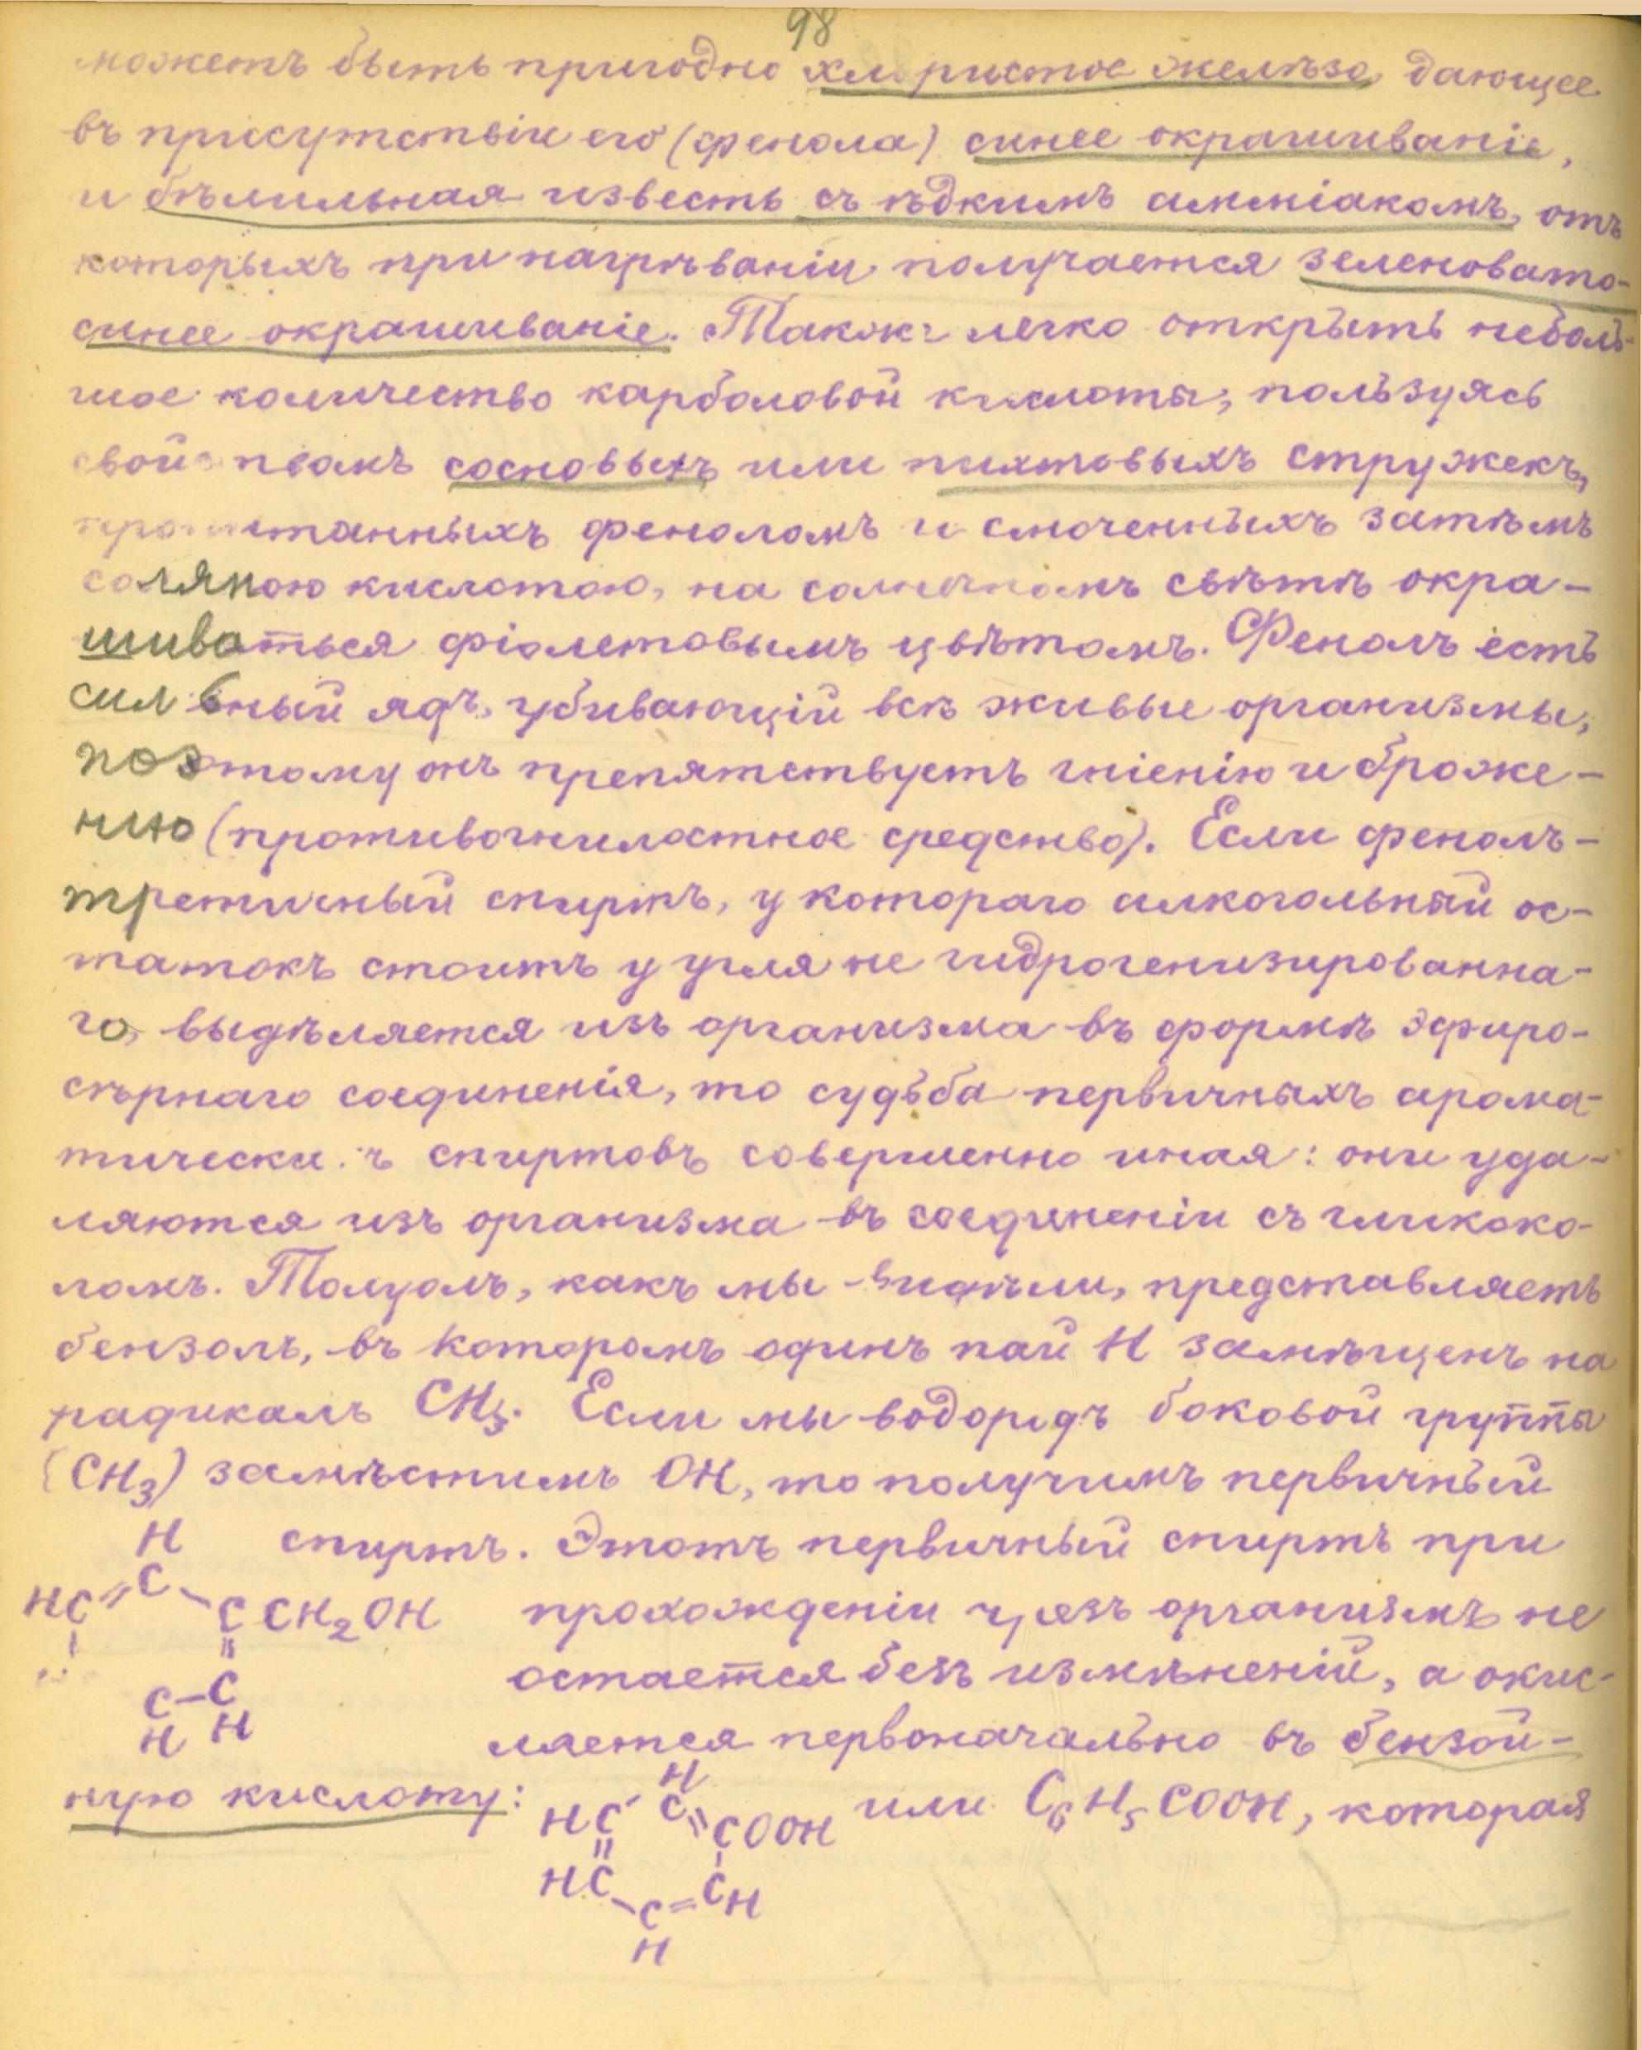 98
можетъ быть пригодно хлористое желѣзо, дающее
въ присутствіи его (фенола) синее окрашиваніе,
и бѣлильная известь съ ѣдкимъ амміакомъ, отъ
которыхъ при нагрѣваніи получается зеленовато-
синее окрашиваніе. Также легко открыть неболь-
шое количество карболовой кислоты, пользуясь
свойствамъ сосновыхъ или пихтовыхъ стружекъ,
пропитанныхъ феноломъ и смоченныхъ затѣмъ
соляною кислотою, на солнечномъ свѣтѣ окра-
шиваться фіолетовымъ цвѣтомъ. Фенолъ есть
сильный ядъ, убивающій всѣ живые организмы,
поэтому онъ препятствуетъ гніенію и броже-
нию (противогнилостное средство). Если фенолъ-
третичный спиртъ, у котораго алкогольный ос-
татокъ стоитъ у угля не гидрогенизированна-
го, выдѣляется изъ организма въ формѣ эфиро-
сѣрнаго соединенія, то судьба первичныхъ арома-
тически.ъ спиртовъ совершенно иная: они уда-
ляются изъ организма въ соединеніи съ гликоко-
ломъ. Толуолъ, какъ мы видѣли, представляетъ
бензолъ, въ которомъ одинъ пай H замѣщенъ на
радикалъ CH3. Если мы водородъ боковой группы
(CH3) замѣстимъ OH, то получимъ первичный
H спиртъ. Этотъ первичный спиртъ при
HC = C - C CH2OH прохожденіи чрезъ организмъ не
остается безъ измѣненій, а окис-
C-C
H H ляется первоначально въ бензой-
ную кислоту:
H
HC C = COOH или C6H5COOH, которая
HC C = CH
H